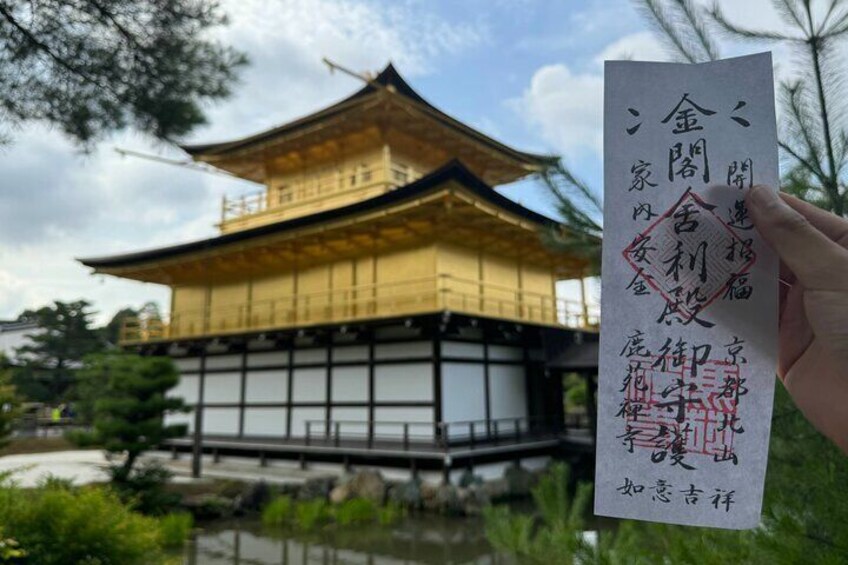 開運招福　京都北山
金閣舎利殿御守護
家内安全　鹿苑禅寺
如意吉祥